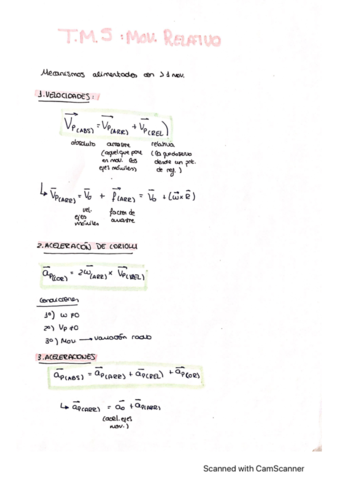 T.M.5: MOV. RELATIVO
Mecanismos alimentados con >1 mov.
1. VELOCIDADES:
VP(ABS) = VP(ARR) + VP(REL)
absoluto arrastre relativa
(aquel que pone en mov. los ejes móviles)
desde un pto. de reg.)
↳ VP(ARR) = V0 + f(ARR) = V0 + (ω × R)
vel. ejes móviles
factor de arrastre
2. ACELERACIÓN DE CORIOLIS
aP(COR) = 2ω(ARR) × VP(REL)
CONDICIONES
1º) ω ≠ 0
2º) VP ≠ 0
3º) Mov → variación radio
3. ACELERACIONES
aP(ABS) = aP(ARR) + aP(REL) + aP(COR)
↳ aP(ARR) = a0 + aP(ARR)
(acel. ejes mov.)
Scanned with CamScanner